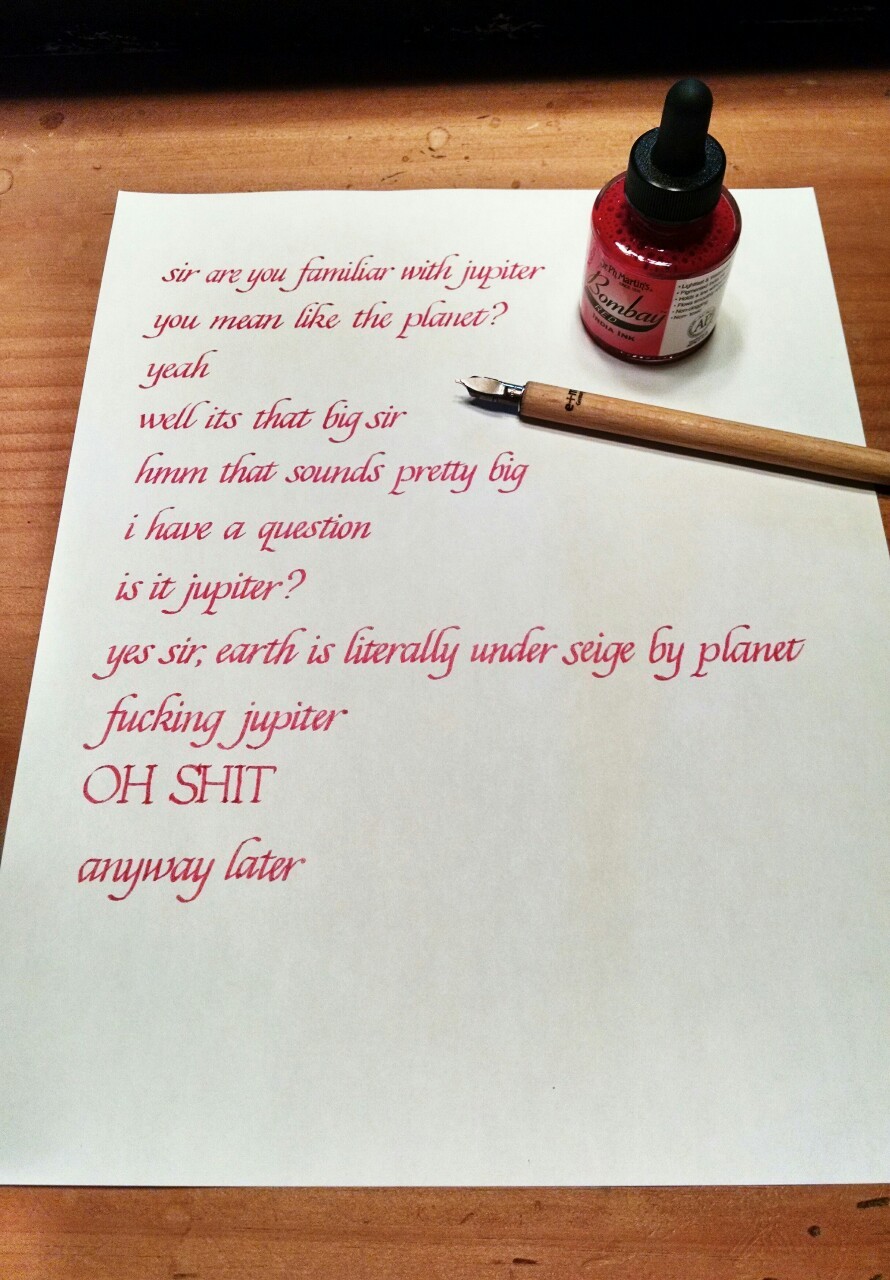 sir are you familiar with jupiter
you mean like the planet?
yeah
well its that big sir
hmm that sounds pretty big
i have a question
is it jupiter?
yes sir, earth is literally under seige by planet
fucking jupiter
OH SHIT
anyway later
Dr. Ph. Martin's
Bombay
RED
INDIA INK
e+m